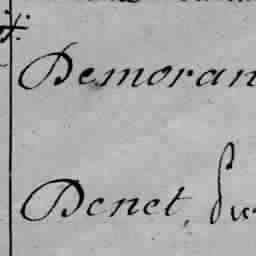 Demoran
Denet,